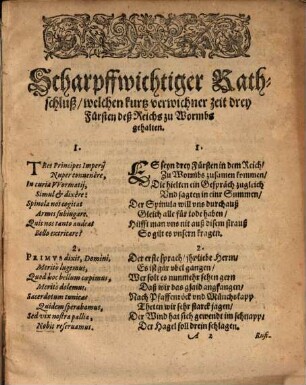 Scharpffwichtiger Rath-
schluß/ welchen kurtz verwichner zeit drey
Fürsten deß Reichs zu Wormbs
gehalten.
1.
TRes Principes Imperij
Nuper convenêre,
In curia VVormatij,
Simul & dixêre:
Spinola nos cogitat
Armis subiugare,
Quis nos tanto audeat
Bello extricare?
2.
PRIMVS dixit, Domini,
Meritò lugemus,
Quod hoc bellum cupimus,
Meritò dolemus,
Sacerdotum tunicas
Quidem sperabamus,
Sed vix nostra pallia,
Nobis reservamus.
1.
ES seyn drey Fürsten in dem Reich/
Zu Wormbs zusamen kommen/
Die hielten ein Gespräch zugleich
Vnd sagten in eine Summen/
Der Spinula will vns durchauß
Gleich alle für todt haben/
Hilfft man vns nit auß disem strauß
So gilt es vnsern kragen.
2.
Der erste sprach/ jhr liebe Herrn/
Es ist gar vbel gangen/
Wer solt es nunmehr sehen gern
Daß wir das gsaid angfangen/
Nach Pfaffenröck vnd Münchskapp
Theten wir sehr starck jagen/
Der Wind hat sich gewendt im schnapp/
Der Hagel soll drein schlagen.
A 2